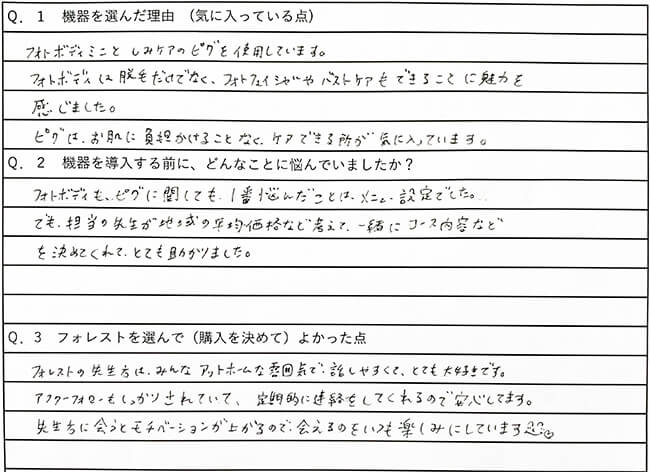 Q．1　機器を選んだ理由　（気に入っている点）
フォトボディミニと しみケアのピグを使用しています。
フォトボディは脱毛だけでなく、フォトフェイシャルやバストケアもできることに魅力を
感じました。
ピグは、お肌に負担かけることなく、ケアできる所が気に入っています。
Q．2　機器を導入する前に、どんなことに悩んでいましたか？
フォトボディも、ピグに関しても、1番悩んだことは、メニュー設定でした。
でも、担当の先生が地域の平均価格など考えて、一緒にコース内容など
を決めてくれて、とても助かりました。
Q．3　フォレストを選んで（購入を決めて）よかった点
フォレストの先生方は、みんなアットホームな雰囲気で、話しやすくて、とても大好きです。
アフターフォローもしっかりされていて、定期的に連絡をしてくれるので安心してます。
先生方に会うとモチベーションが上がるので、会えるのをいつも楽しみにしています